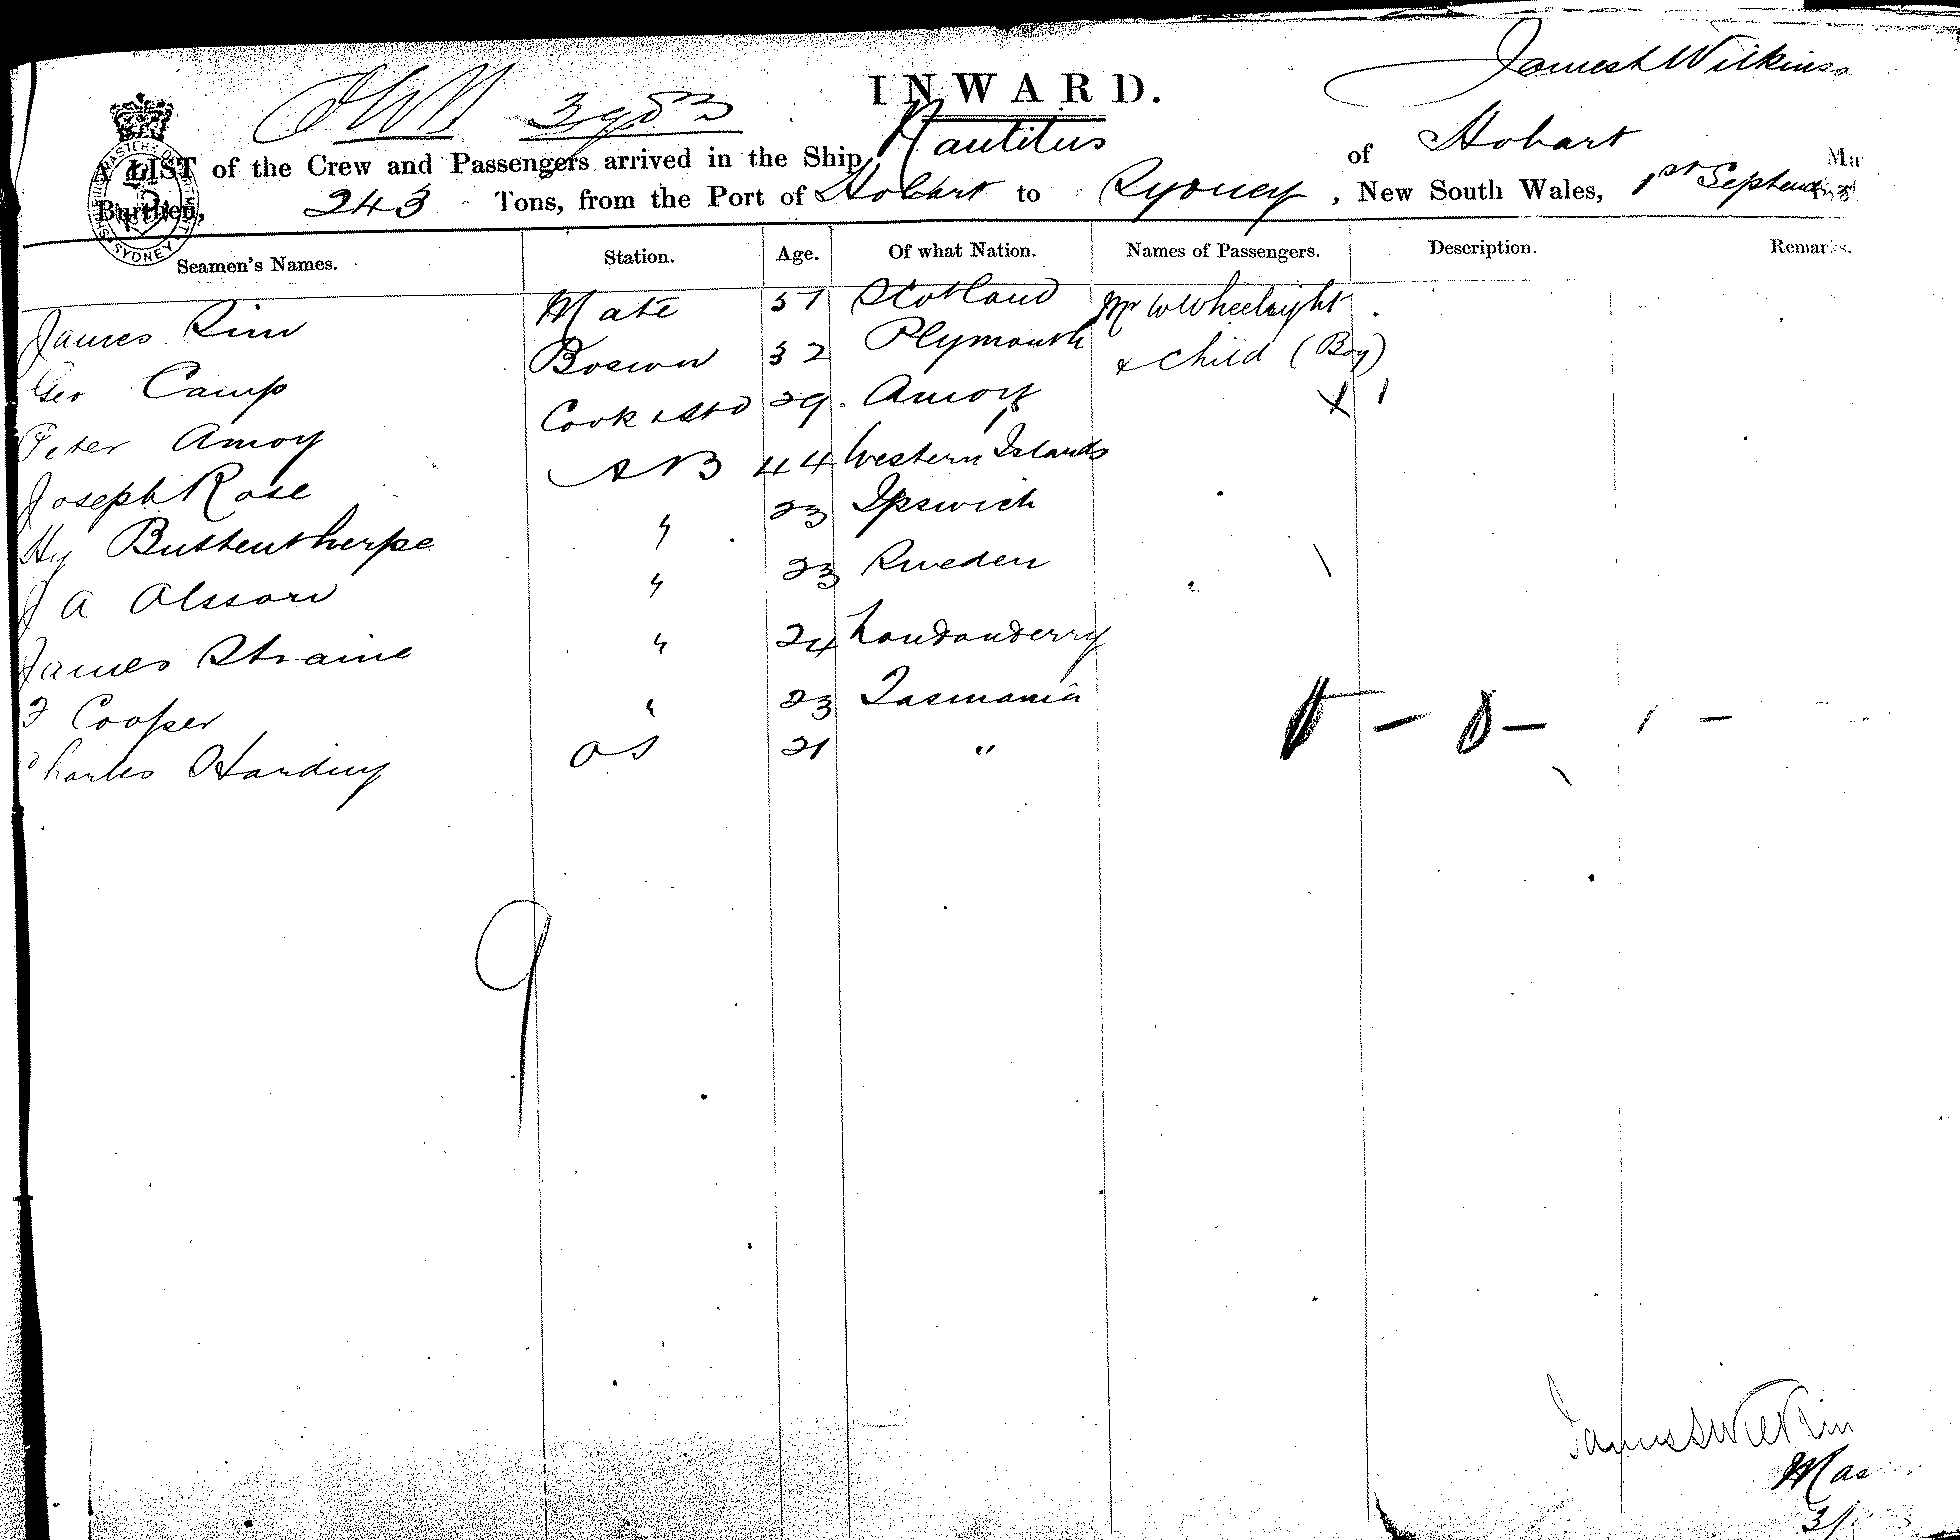 INWARD.
James Wilkins
A LIST of the Crew and Passengers arrived in the Ship Nautilus of Hobart Ma
Burthen, 243 Tons, from the Port of Hobart to Sydney, New South Wales, 1st Septem
Seamen's Names. Station. Age. Of what Nation. Names of Passengers. Description. Remarks.
James Sim Mate 51 Scotland Mr W Wheelright
Geo Camp Bosun 32 Plymouth & child (Boy)
Peter Amoy Cook & Std 29 Amoy
Joseph Rose AB 44 Western Islands
Hy Bustenthorpe " 23 Ipswich
J A Olsson " 23 Sweden
James Straine " 24 Londonderry
F Cooper " 23 Tasmania
Charles Harding OS 21 "
9
James Wilkin
Mas
3/